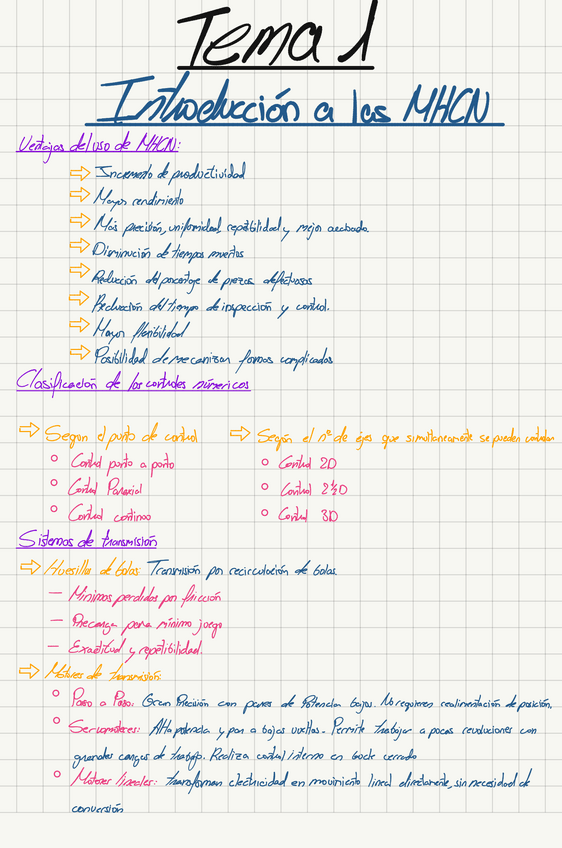 Tema 1
Introducción a las MHCN
Ventajas del uso de MHCN:
⇨ Incremento de productividad
⇨ Mayor rendimiento
⇨ Más precisión, uniformidad, repetibilidad y mejor acabado.
⇨ Disminución de tiempos muertos
⇨ Reducción del porcentaje de piezas defectuosas
⇨ Reducción del tiempo de inspección y control.
⇨ Mayor flexibilidad
⇨ Posibilidad de mecanizar formas complicadas
Clasificación de los controles númericos
⇨ Segun el punto de control
○ Control punto a punto
○ Control Paraxial
○ Control continuo
⇨ Según el nº de ejes que simultaneamente se pueden controlar
○ Control 2D
○ Control 2½D
○ Control 3D
Sistemas de transmisión
⇨ Husillo de bolas: Transmisión por recirculación de bolas.
— Mínimas perdidas por fricción
— Precarga para mínimo juego
— Exactitud y repetibilidad.
⇨ Motores de transmisión:
○ Paso a Paso: Gran Precisión con pares de Potencia bajos. No requieren realimentación de posición.
○ Servomotores: Alta potencia y par a bajas vueltas. Permite trabajar a pocas revoluciones con
grandes cargas de trabajo. Realiza control interno en bucle cerrado
○ Motores lineales: transforman electricidad en movimiento lineal directamente, sin necesidad de
conversión